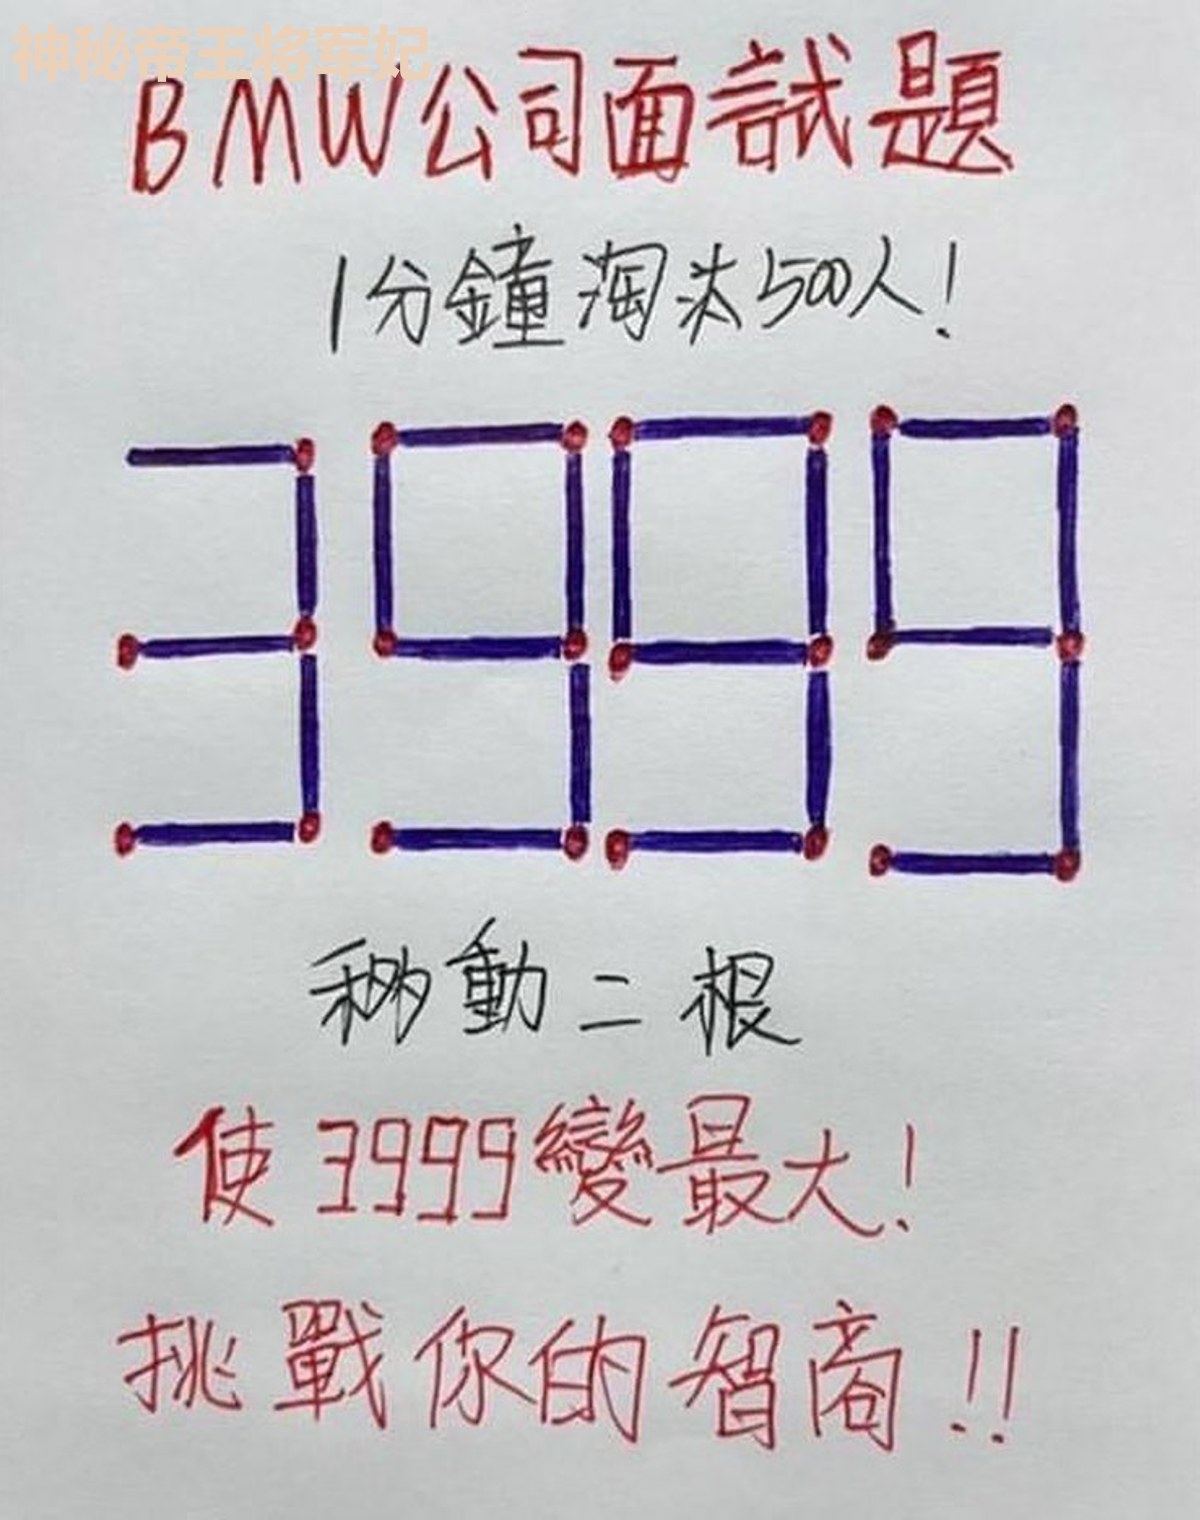 神秘帝王将军妃
BMW公司面試題
1分鐘淘汰500人！
3999
移動二根
使3999變最大！
挑戰你的智商！！